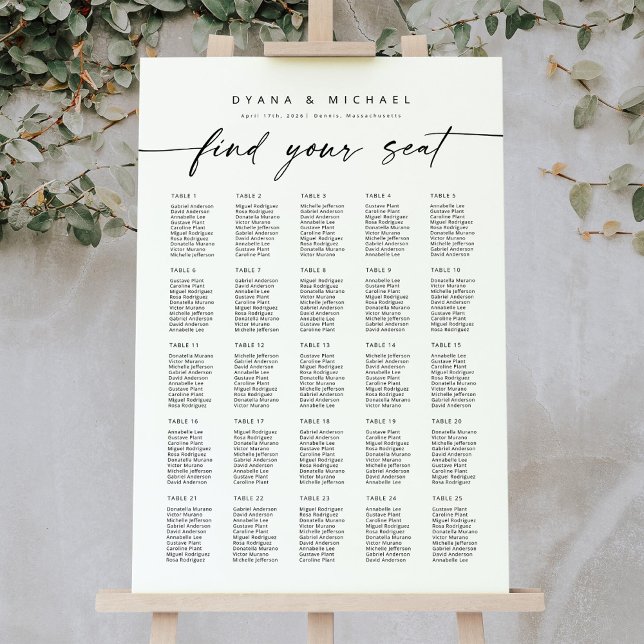 DYANA & MICHAEL
April 17th, 2026 | Dennis, Massachusetts
find your seat
TABLE 1
Gabriel Anderson
David Anderson
Annabelle Lee
Gustave Plant
Caroline Plant
Miguel Rodriguez
Rosa Rodriguez
Donatella Murano
Victor Murano
Michelle Jefferson
TABLE 2
Miguel Rodriguez
Rosa Rodriguez
Donatella Murano
Victor Murano
Michelle Jefferson
Gabriel Anderson
David Anderson
Annabelle Lee
Gustave Plant
Caroline Plant
TABLE 3
Michelle Jefferson
Gabriel Anderson
David Anderson
Annabelle Lee
Gustave Plant
Caroline Plant
Miguel Rodriguez
Rosa Rodriguez
Donatella Murano
Victor Murano
TABLE 4
Gustave Plant
Caroline Plant
Miguel Rodriguez
Rosa Rodriguez
Donatella Murano
Victor Murano
Michelle Jefferson
Gabriel Anderson
David Anderson
Annabelle Lee
TABLE 5
Annabelle Lee
Gustave Plant
Caroline Plant
Miguel Rodriguez
Rosa Rodriguez
Donatella Murano
Victor Murano
Michelle Jefferson
Gabriel Anderson
David Anderson
TABLE 6
Gustave Plant
Caroline Plant
Miguel Rodriguez
Rosa Rodriguez
Donatella Murano
Victor Murano
Michelle Jefferson
Gabriel Anderson
David Anderson
Annabelle Lee
TABLE 7
Michelle Jefferson
Gabriel Anderson
David Anderson
Annabelle Lee
Gustave Plant
Caroline Plant
Miguel Rodriguez
Rosa Rodriguez
Donatella Murano
Victor Murano
TABLE 8
Miguel Rodriguez
Rosa Rodriguez
Donatella Murano
Victor Murano
Michelle Jefferson
Gabriel Anderson
David Anderson
Annabelle Lee
Gustave Plant
Caroline Plant
TABLE 9
Annabelle Lee
Gustave Plant
Caroline Plant
Miguel Rodriguez
Rosa Rodriguez
Donatella Murano
Victor Murano
Michelle Jefferson
Gabriel Anderson
David Anderson
TABLE 10
Donatella Murano
Victor Murano
Michelle Jefferson
Gabriel Anderson
David Anderson
Annabelle Lee
Gustave Plant
Caroline Plant
Miguel Rodriguez
Rosa Rodriguez
TABLE 11
Donatella Murano
Victor Murano
Michelle Jefferson
Gabriel Anderson
David Anderson
Annabelle Lee
Gustave Plant
Caroline Plant
Miguel Rodriguez
Rosa Rodriguez
TABLE 12
Michelle Jefferson
Gabriel Anderson
David Anderson
Annabelle Lee
Gustave Plant
Caroline Plant
Miguel Rodriguez
Rosa Rodriguez
Donatella Murano
Victor Murano
TABLE 13
Gustave Plant
Caroline Plant
Miguel Rodriguez
Rosa Rodriguez
Donatella Murano
Victor Murano
Michelle Jefferson
Gabriel Anderson
David Anderson
Annabelle Lee
TABLE 14
Michelle Jefferson
Gabriel Anderson
David Anderson
Annabelle Lee
Gustave Plant
Caroline Plant
Miguel Rodriguez
Rosa Rodriguez
Donatella Murano
Victor Murano
TABLE 15
Miguel Rodriguez
Rosa Rodriguez
Donatella Murano
Victor Murano
Michelle Jefferson
Gabriel Anderson
David Anderson
Annabelle Lee
Gustave Plant
Caroline Plant
TABLE 16
Annabelle Lee
Gustave Plant
Caroline Plant
Miguel Rodriguez
Rosa Rodriguez
Donatella Murano
Victor Murano
Michelle Jefferson
Gabriel Anderson
David Anderson
TABLE 17
Miguel Rodriguez
Rosa Rodriguez
Donatella Murano
Victor Murano
Michelle Jefferson
Gabriel Anderson
David Anderson
Annabelle Lee
Gustave Plant
Caroline Plant
TABLE 18
Gabriel Anderson
David Anderson
Annabelle Lee
Gustave Plant
Caroline Plant
Miguel Rodriguez
Rosa Rodriguez
Donatella Murano
Victor Murano
Michelle Jefferson
TABLE 19
Gustave Plant
Caroline Plant
Miguel Rodriguez
Rosa Rodriguez
Donatella Murano
Victor Murano
Michelle Jefferson
Gabriel Anderson
David Anderson
Annabelle Lee
TABLE 20
Donatella Murano
Victor Murano
Michelle Jefferson
Gabriel Anderson
David Anderson
Annabelle Lee
Gustave Plant
Caroline Plant
Miguel Rodriguez
Rosa Rodriguez
TABLE 21
Donatella Murano
Victor Murano
Michelle Jefferson
Gabriel Anderson
David Anderson
Annabelle Lee
Gustave Plant
Caroline Plant
Miguel Rodriguez
Rosa Rodriguez
TABLE 22
Gabriel Anderson
David Anderson
Annabelle Lee
Gustave Plant
Caroline Plant
Miguel Rodriguez
Rosa Rodriguez
Donatella Murano
Victor Murano
Michelle Jefferson
TABLE 23
Miguel Rodriguez
Rosa Rodriguez
Donatella Murano
Victor Murano
Michelle Jefferson
Gabriel Anderson
David Anderson
Annabelle Lee
Gustave Plant
Caroline Plant
TABLE 24
Annabelle Lee
Gustave Plant
Caroline Plant
Miguel Rodriguez
Rosa Rodriguez
Donatella Murano
Victor Murano
Michelle Jefferson
Gabriel Anderson
David Anderson
TABLE 25
Gustave Plant
Caroline Plant
Miguel Rodriguez
Rosa Rodriguez
Donatella Murano
Victor Murano
Michelle Jefferson
Gabriel Anderson
David Anderson
Annabelle Lee